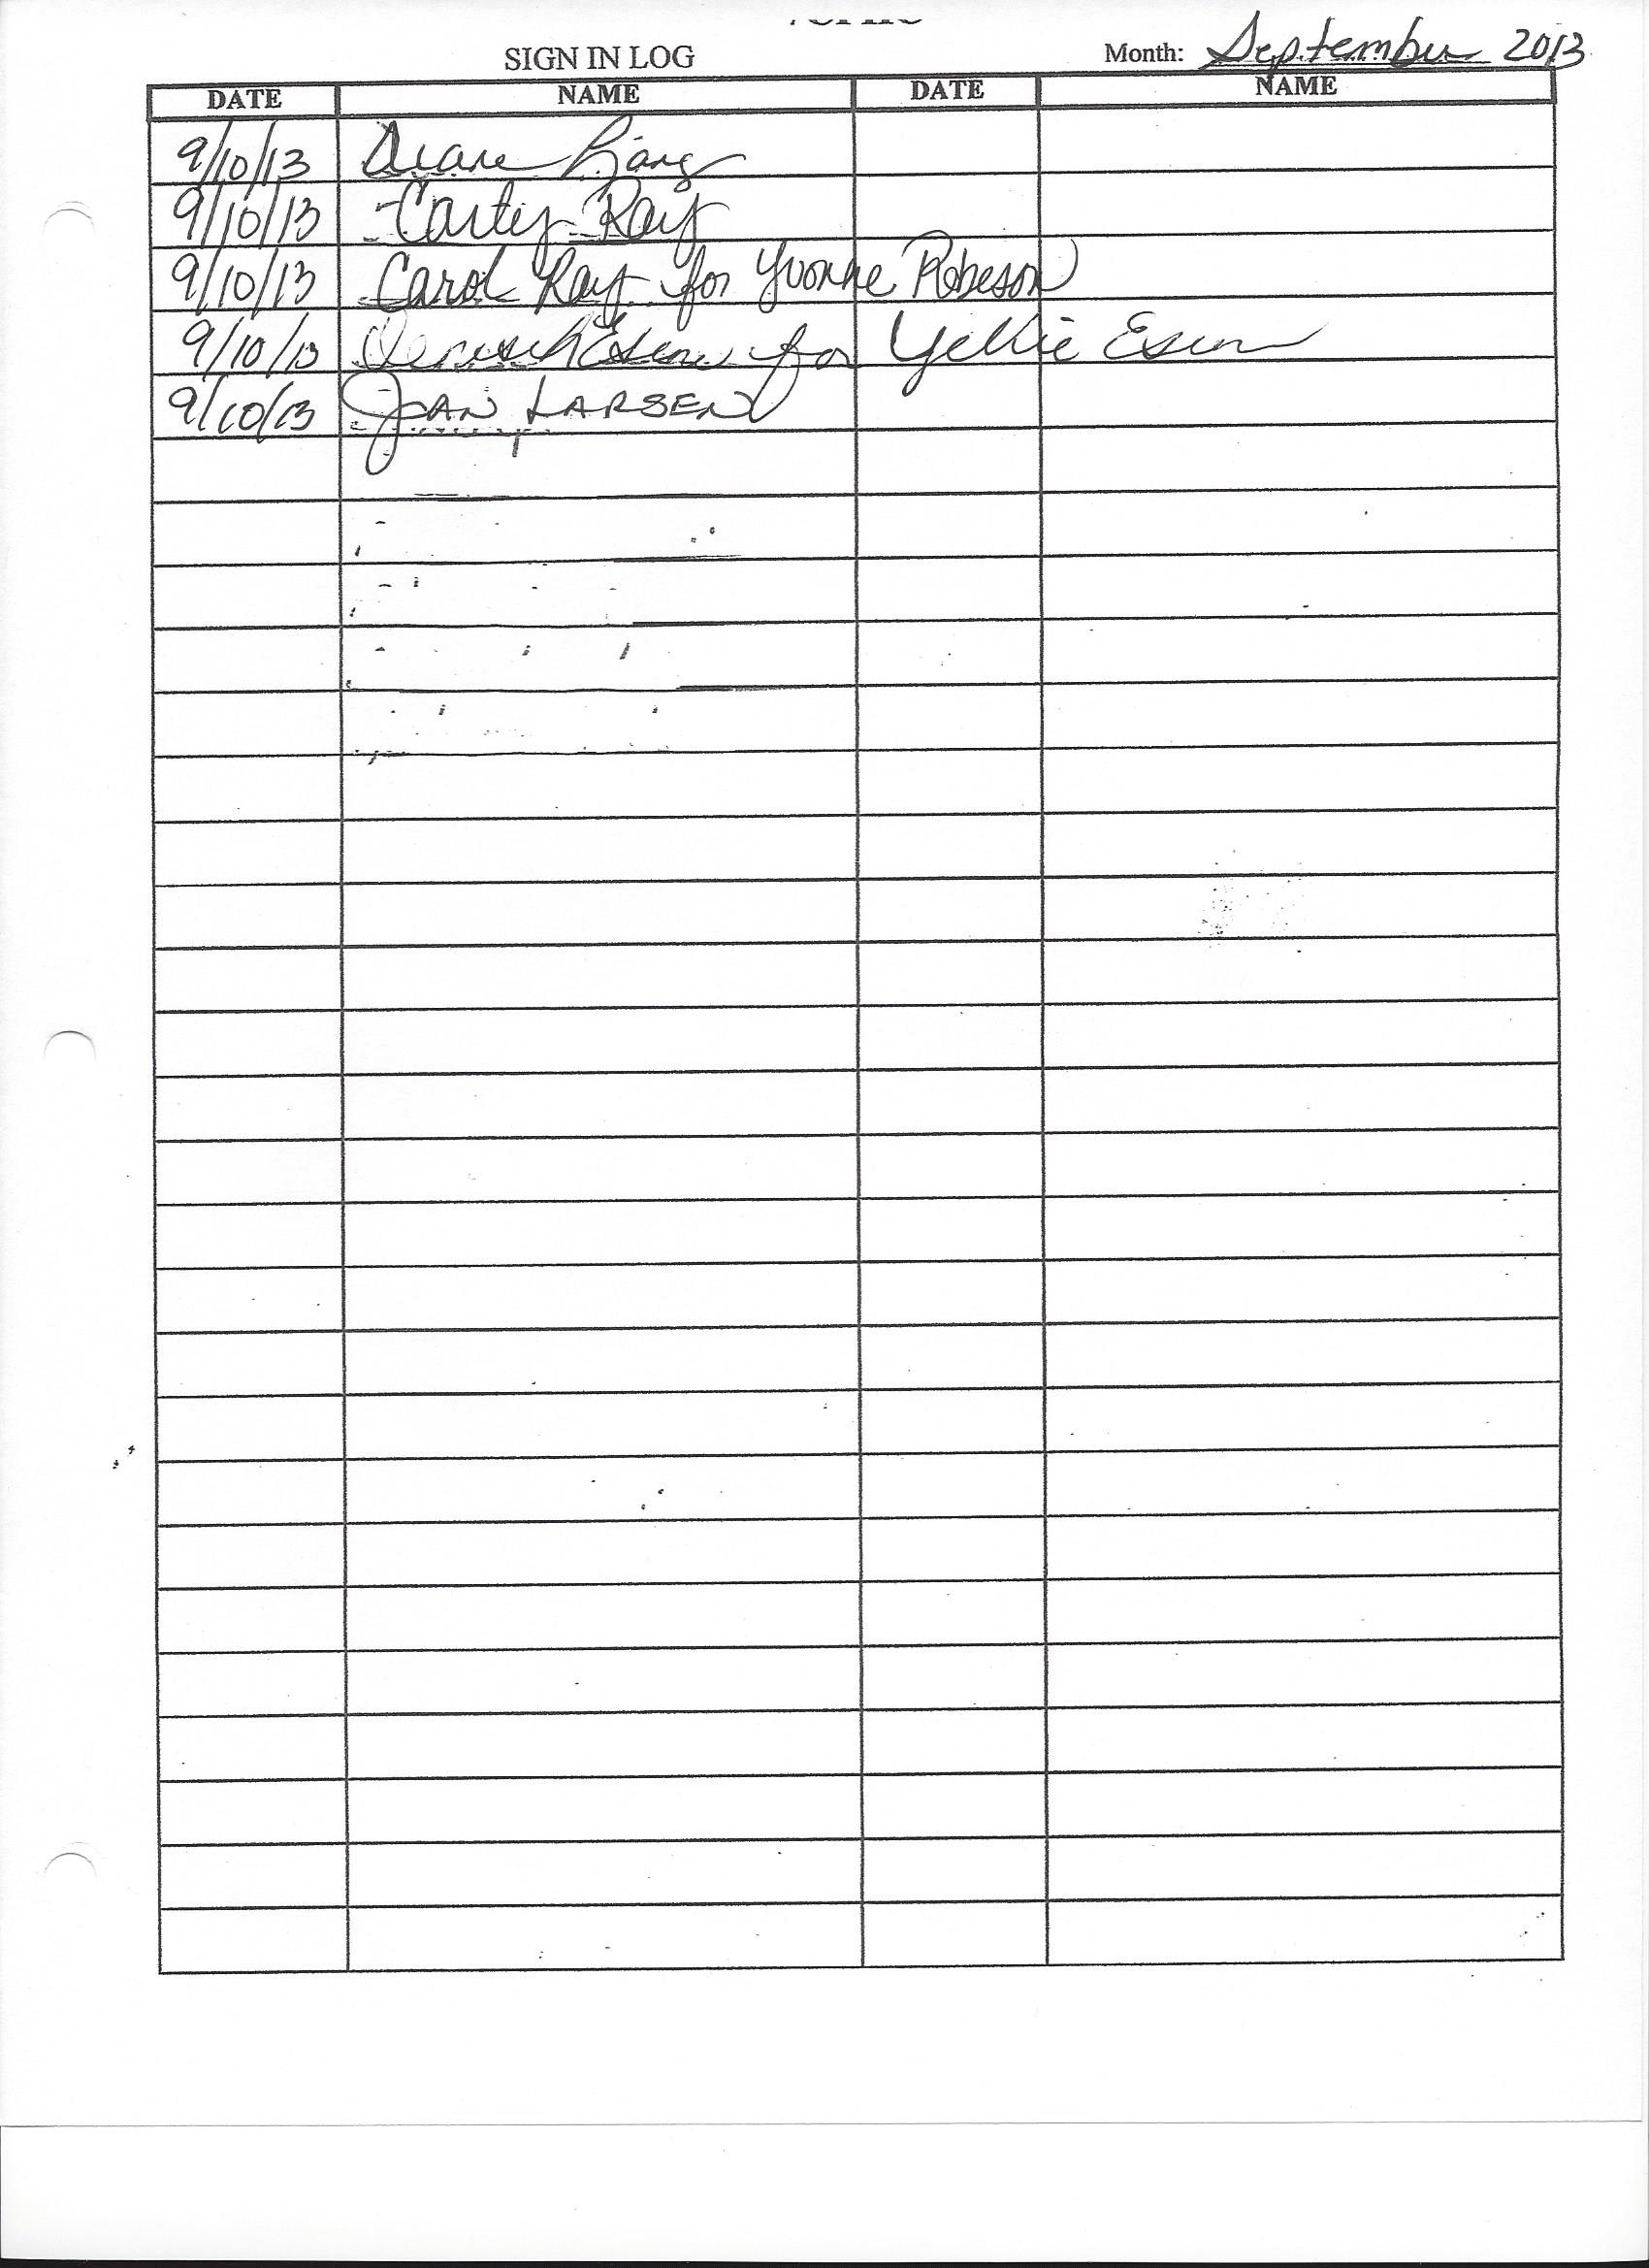 SIGN IN LOG Month: September 2013
DATE NAME DATE NAME
9/10/13 Diane
9/10/13 Carter Ray
9/10/13 Carol Ray for Yvonne Robeson
9/10/13 for
9/10/13 JOAN LARSEN